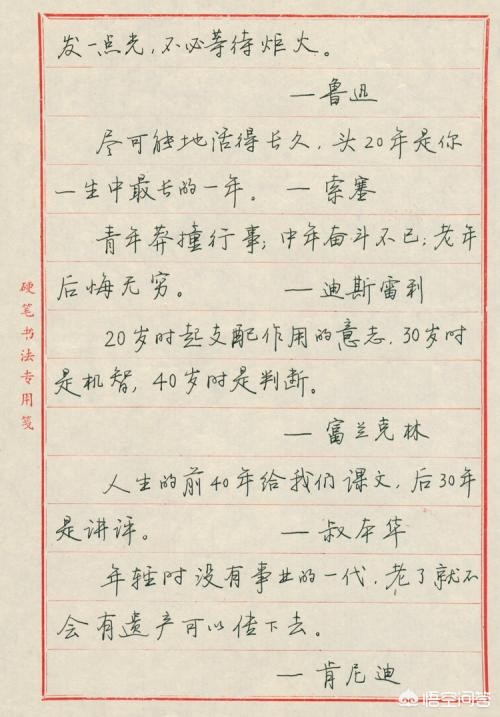 发一点光，不必等待炬火。
—鲁迅
尽可能地活得长久，头20年是你
一生中最长的一年。 —索塞
青年莽撞行事；中年奋斗不已；老年
后悔无穷。 —迪斯雷利
20岁时起支配作用的意志，30岁时
是机智，40岁时是判断。
—富兰克林
人生的前40年给我们课文，后30年
是讲评。 —叔本华
年轻时没有事业的一代，老了就不
会有遗产可以传下去。
—肯尼迪
硬笔书法专用笺
悟空问答